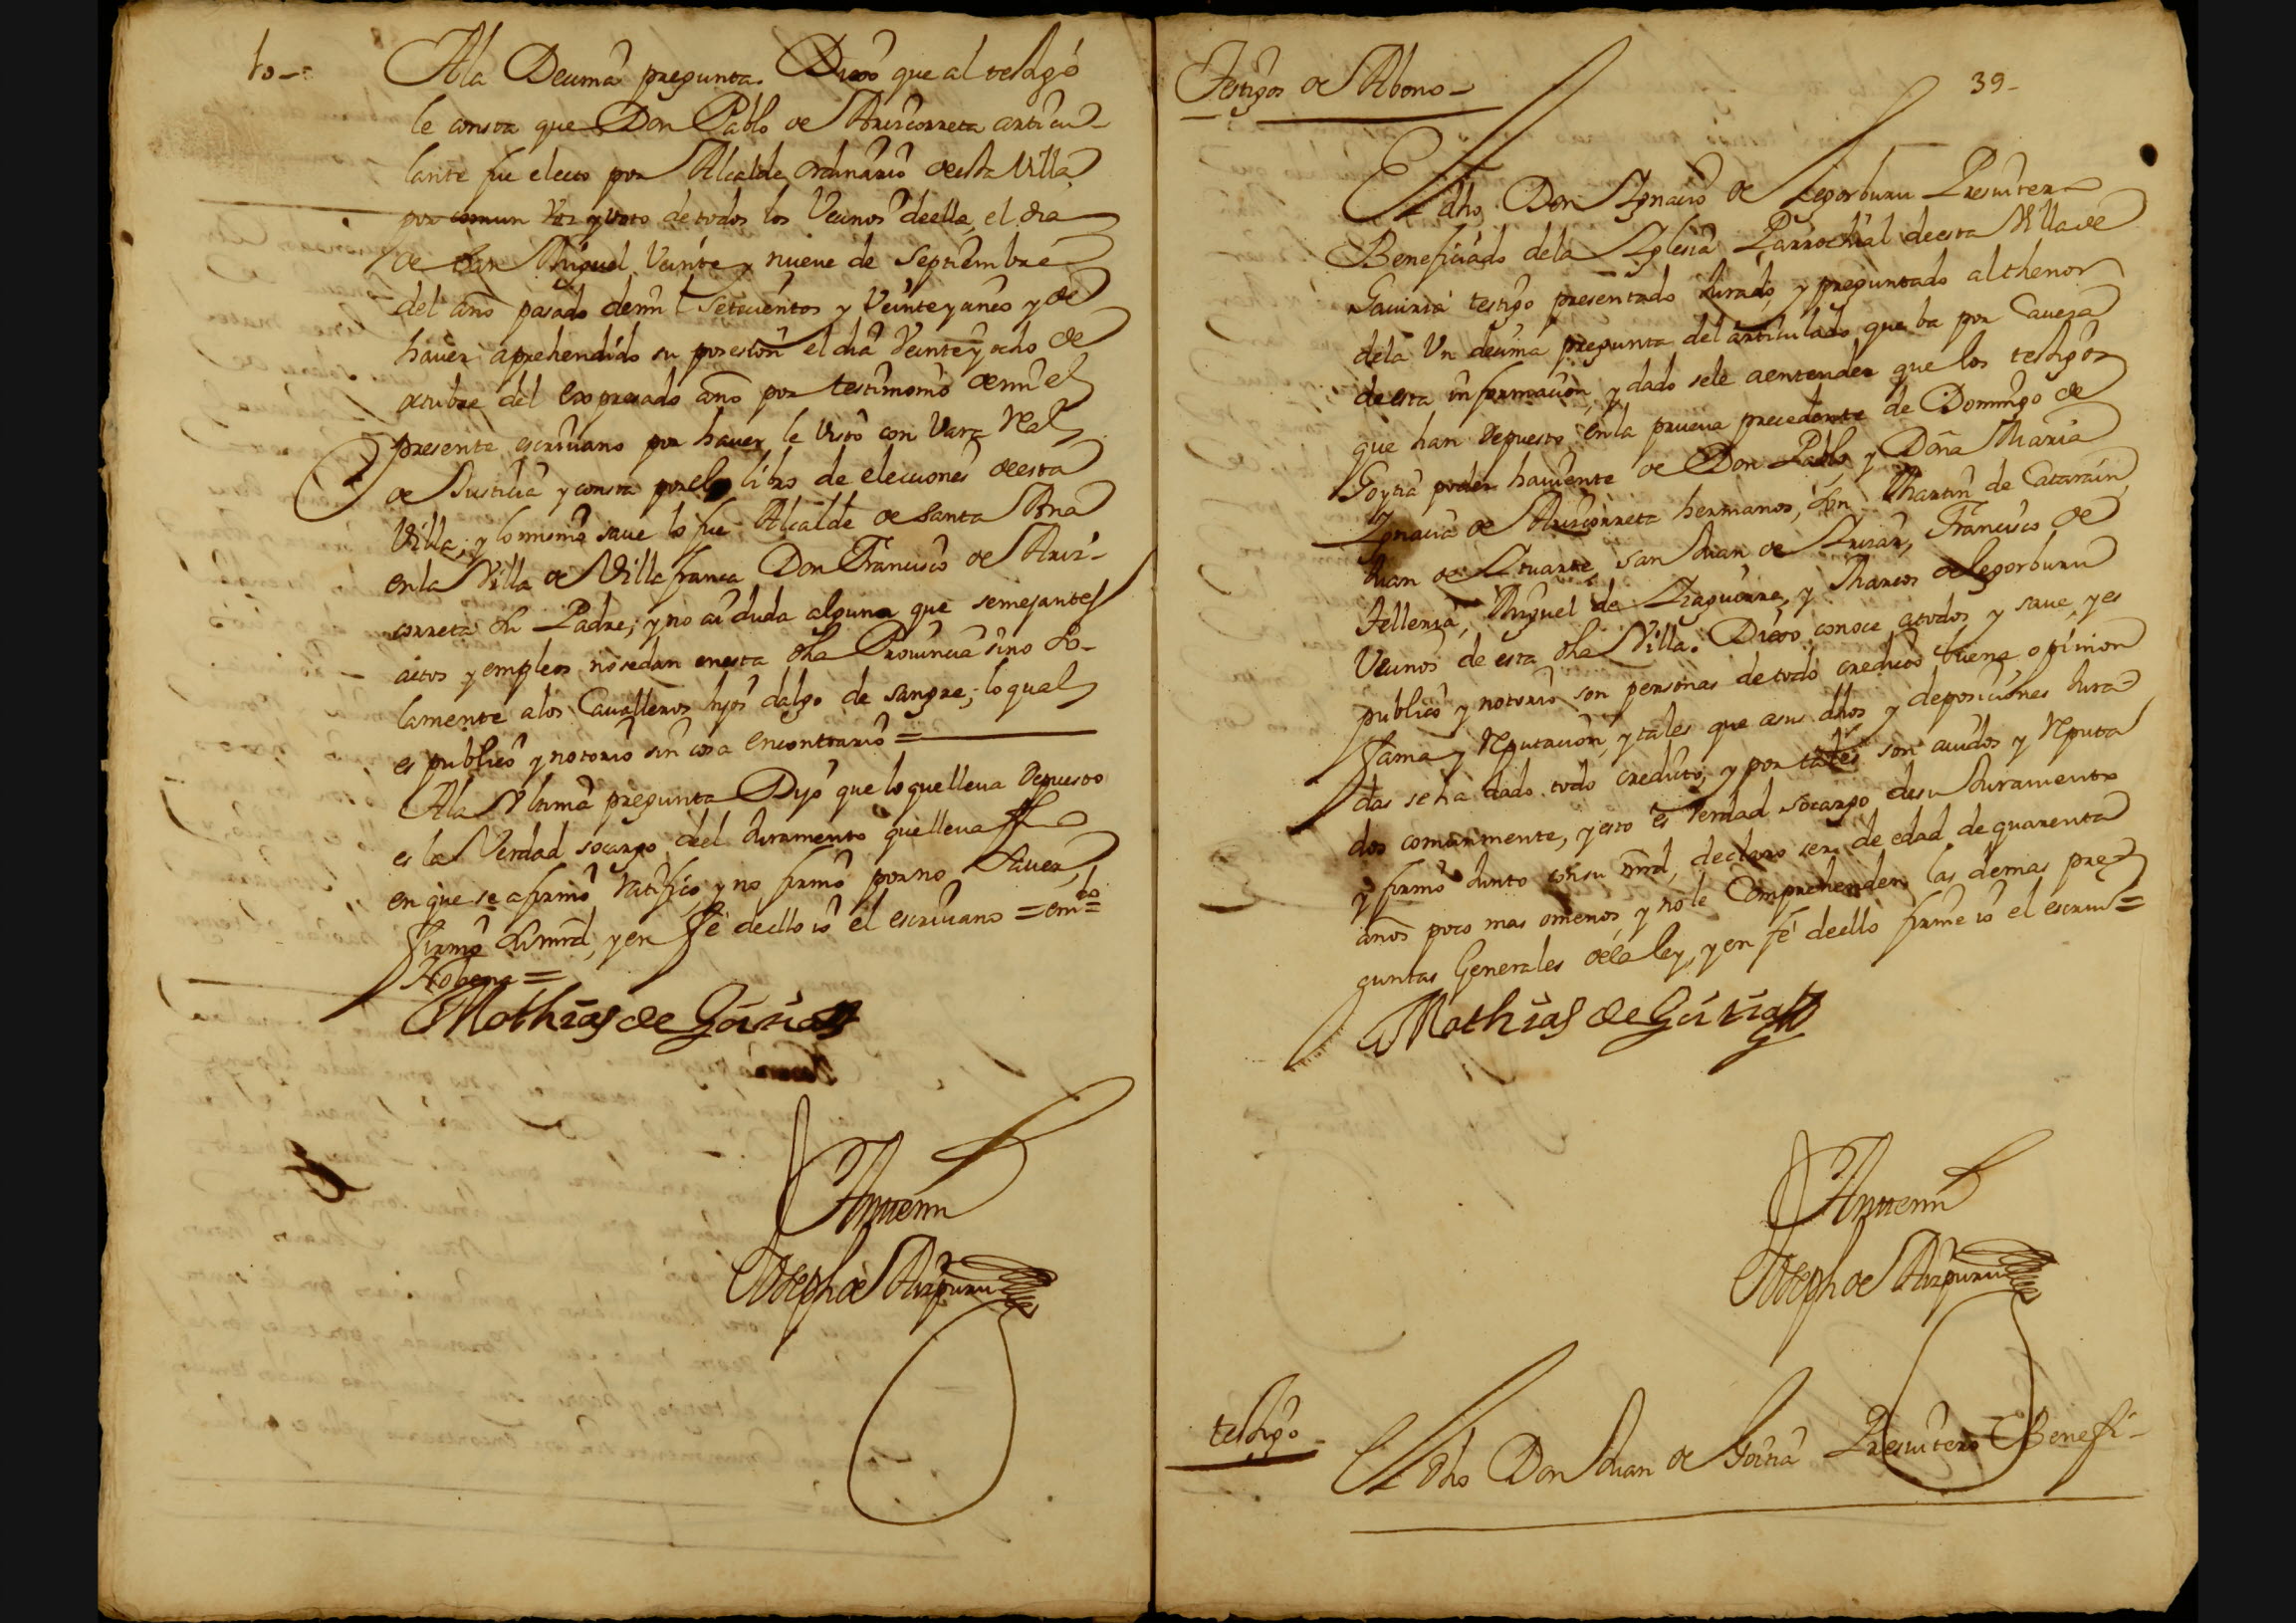 10-
Ala Decima pregunta. Dixo que al testigo
le consta que Don Pablo de Arizcorreta articu-
lante fue electo por Alcalde ordinario de esta Villa
por comun voz y voto de todos los Vecinos de ella, el dia
de San Miguel Veinte y nueve de Septiembre
del año pasado de mil setecientos y Veinte y cinco y de
haver aprehendido su posesion el dia Veinte y ocho de
octubre del expresado año por testimonio de mi el
presente escriuano por hauer le visto con Vara Real
de Justicia y consta por el libro de elecciones de esta
Villa; y lo mismo saue lo fue Alcalde de Santa Ana
en la Villa de Villafranca Don Francisco de Ariz-
correta su Padre; y no ai duda alguna que semejantes
actos y empleos no se dan en esta dha Prouincia sino so-
lamente a los Caualleros hijos dalgo de sangre; lo qual
es publico y notorio sin cosa en contrario =
Ala Vltima pregunta Dijo que lo que lleua depuesto
es la Verdad socargo del Juramento que lleua fho
en que se afirmo ratifico, y no firmo por no sauer,
firmo su mrd, y en fe de ello io el escriuano = emdo=
Mathias de Goiria
Ante mi
Joseph de Aizpuru
Testigos de Abono-
39-
El dho Don Ignacio de Legorburu Presuitero
Beneficiado de la Iglesia Parrochial de esta Villa de
Gauiria testigo presentado Jurado, y preguntado al thenor
de la Vn decima pregunta del articulado que ba por Caueza
de esta informacion, y dado sele a entender que los testigos
que han depuesto en la prueua precedente de Domingo de
Goytia poder hauiente de Don Pablo, y Doña Maria
Ignacia de Arizcorreta hermanos, son Martin de Cataráin,
Juan de Ituarte, san Juan de Irizar, Francisco de
Telleria, Miguel de Izaguirre, y Marcos de Legorburu
Vecinos de esta dha Villa. Dixo conoce a todos y saue, y es
publico y notorio son personas de todo credito buena opinion
fama y reputacion, y tales que a sus dhos y deposiciones Jura-
das se ha dado todo credito, y por tales son auidos y reputa
dos comunmente, y esto es Verdad socargo de su Juramento
y firmo Junto con su mrd, declaro ser de edad de quarenta
años poco mas o menos, y no le Comprehenden las demas pre-
guntas Generales de la ley, y en fe de ello firme io el escriu=
Mathias de Goiria
Ante mi
Joseph de Aizpuru
testigo
El dho Don Juan de Goiria Presuitero Benefi-